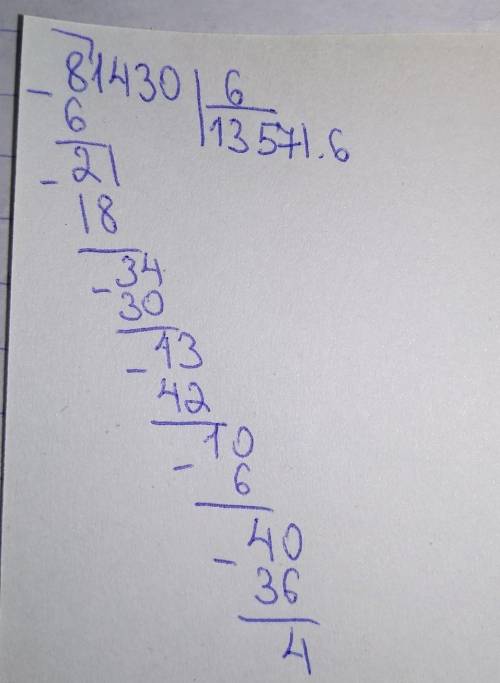 81430 6
- 6 13571.6
21
- 18
34
- 30
13
- 42
10
- 6
40
- 36
4